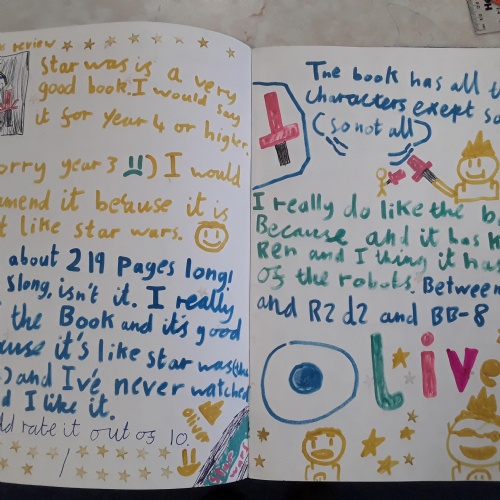 review
Star was is a very
good book. I would say
it for year 4 or higher.
orry year 3 ) I would
amend it because it is
t like star wars.
about 219 Pages long!
s long, isn't it. I really
the Book and it's good
ause it's like star was (the
) and I've never watched
d I like it.
ld rate it out of 10.
oliver
The book has all t
characters exept so
(so not all)
I really do like the b
Because and it has k
Ren and I thing it has
of the robots. Between
and R2d2 and BB-8
Olive